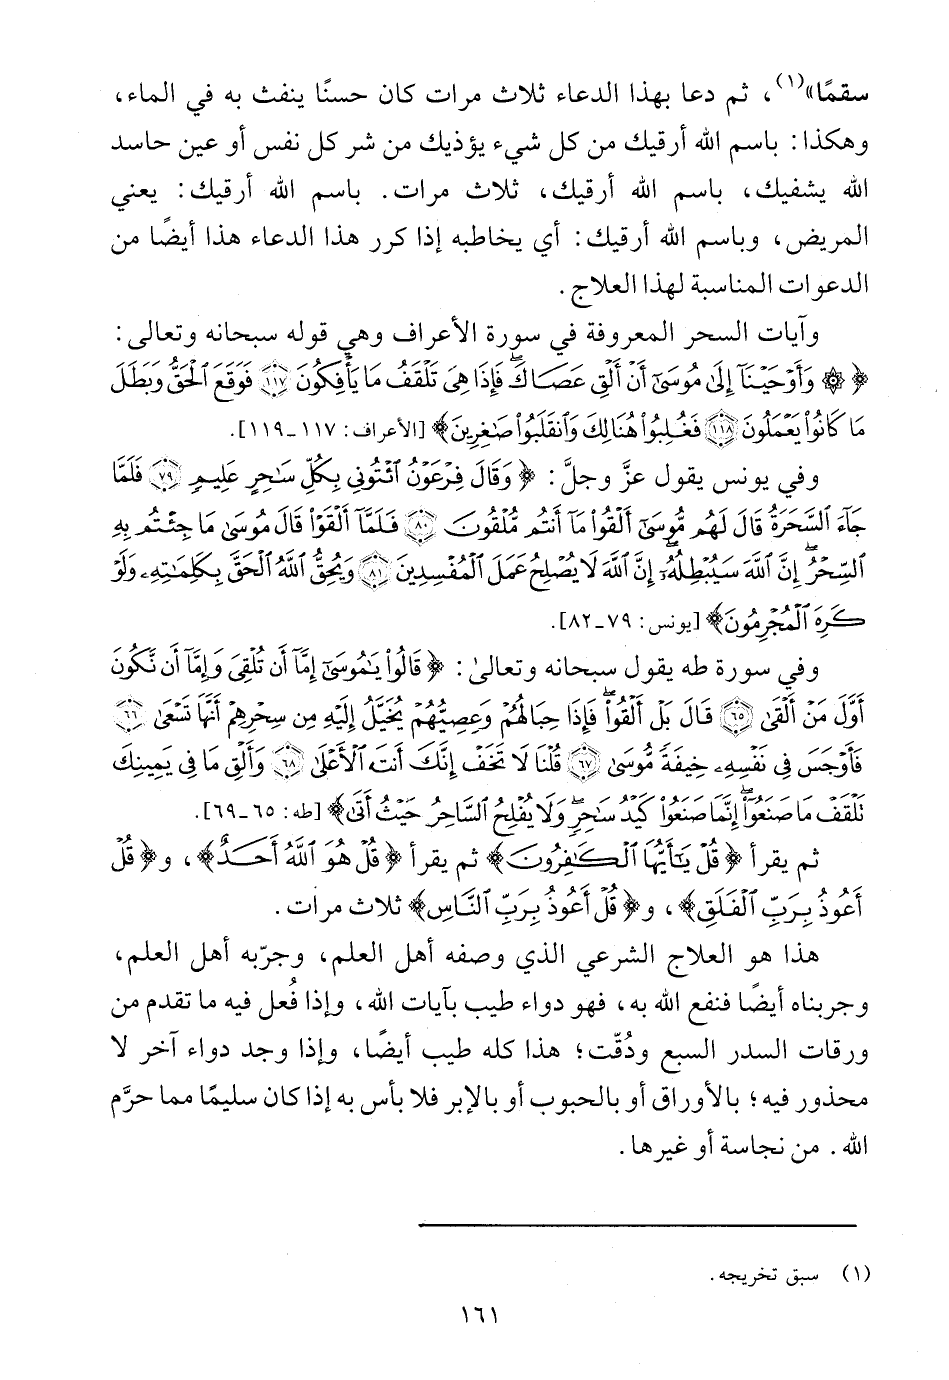 سقمًا»(١)، ثم دعا بهذا الدعاء ثلاث مرات كان حسنًا ينفث به في الماء،
وهكذا: باسم الله أرقيك من كل شيء يؤذيك من شر كل نفس أو عين حاسد
الله يشفيك، باسم الله أرقيك، ثلاث مرات. باسم الله أرقيك: يعني
المريض، وباسم الله أرقيك: أي يخاطبه إذا كرر هذا الدعاء هذا أيضًا من
الدعوات المناسبة لهذا العلاج.
وآيات السحر المعروفة في سورة الأعراف وهي قوله سبحانه وتعالى:
﴿ ۞ وَأَوْحَيْنَآ إِلَىٰ مُوسَىٰٓ أَنْ أَلْقِ عَصَاكَۖ فَإِذَا هِىَ تَلْقَفُ مَا يَأْفِكُونَ ١١٧ فَوَقَعَ ٱلْحَقُّ وَبَطَلَ
مَا كَانُوا۟ يَعْمَلُونَ ١١٨ فَغُلِبُوا۟ هُنَالِكَ وَٱنقَلَبُوا۟ صَٰغِرِينَ﴾ [الأعراف: ١١٧-١١٩].
وفي يونس يقول عزَّ وجلَّ: ﴿ وَقَالَ فِرْعَوْنُ ٱئْتُونِى بِكُلِّ سَٰحِرٍ عَلِيمٍ ٧٩ فَلَمَّا
جَآءَ ٱلسَّحَرَةُ قَالَ لَهُم مُّوسَىٰٓ أَلْقُوا۟ مَآ أَنتُم مُّلْقُونَ ٨٠ فَلَمَّآ أَلْقَوْا۟ قَالَ مُوسَىٰ مَا جِئْتُم بِهِ
ٱلسِّحْرُۖ إِنَّ ٱللَّهَ سَيُبْطِلُهُۥٓۖ إِنَّ ٱللَّهَ لَا يُصْلِحُ عَمَلَ ٱلْمُفْسِدِينَ ٨١ وَيُحِقُّ ٱللَّهُ ٱلْحَقَّ بِكَلِمَٰتِهِۦ وَلَوْ
كَرِهَ ٱلْمُجْرِمُونَ﴾ [يونس: ٧٩-٨٢].
وفي سورة طه يقول سبحانه وتعالىٰ: ﴿ قَالُوا۟ يَٰمُوسَىٰٓ إِمَّآ أَن تُلْقِىَ وَإِمَّآ أَن نَّكُونَ
أَوَّلَ مَنْ أَلْقَىٰ ٦٥ قَالَ بَلْ أَلْقُوا۟ۖ فَإِذَا حِبَالُهُمْ وَعِصِيُّهُمْ يُخَيَّلُ إِلَيْهِ مِن سِحْرِهِمْ أَنَّهَا تَسْعَىٰ ٦٦
فَأَوْجَسَ فِى نَفْسِهِۦ خِيفَةً مُّوسَىٰ ٦٧ قُلْنَا لَا تَخَفْ إِنَّكَ أَنتَ ٱلْأَعْلَىٰ ٦٨ وَأَلْقِ مَا فِى يَمِينِكَ
تَلْقَفْ مَا صَنَعُوٓا۟ۖ إِنَّمَا صَنَعُوا۟ كَيْدُ سَٰحِرٍۖ وَلَا يُفْلِحُ ٱلسَّاحِرُ حَيْثُ أَتَىٰ﴾ [طه: ٦٥-٦٩].
ثم يقرأ ﴿ قُلْ يَٰٓأَيُّهَا ٱلْكَٰفِرُونَ﴾ ثم يقرأ ﴿ قُلْ هُوَ ٱللَّهُ أَحَدٌ﴾، و﴿ قُلْ
أَعُوذُ بِرَبِّ ٱلْفَلَقِ﴾، و﴿ قُلْ أَعُوذُ بِرَبِّ ٱلنَّاسِ﴾ ثلاث مرات.
هذا هو العلاج الشرعي الذي وصفه أهل العلم، وجرّبه أهل العلم،
وجربناه أيضًا فنفع الله به، فهو دواء طيب بآيات الله، وإذا فُعل فيه ما تقدم من
ورقات السدر السبع ودُقّت؛ هذا كله طيب أيضًا، وإذا وجد دواء آخر لا
محذور فيه؛ بالأوراق أو بالحبوب أو بالإبر فلا بأس به إذا كان سليمًا مما حرَّم
الله. من نجاسة أو غيرها.
(١) سبق تخريجه.
١٦١